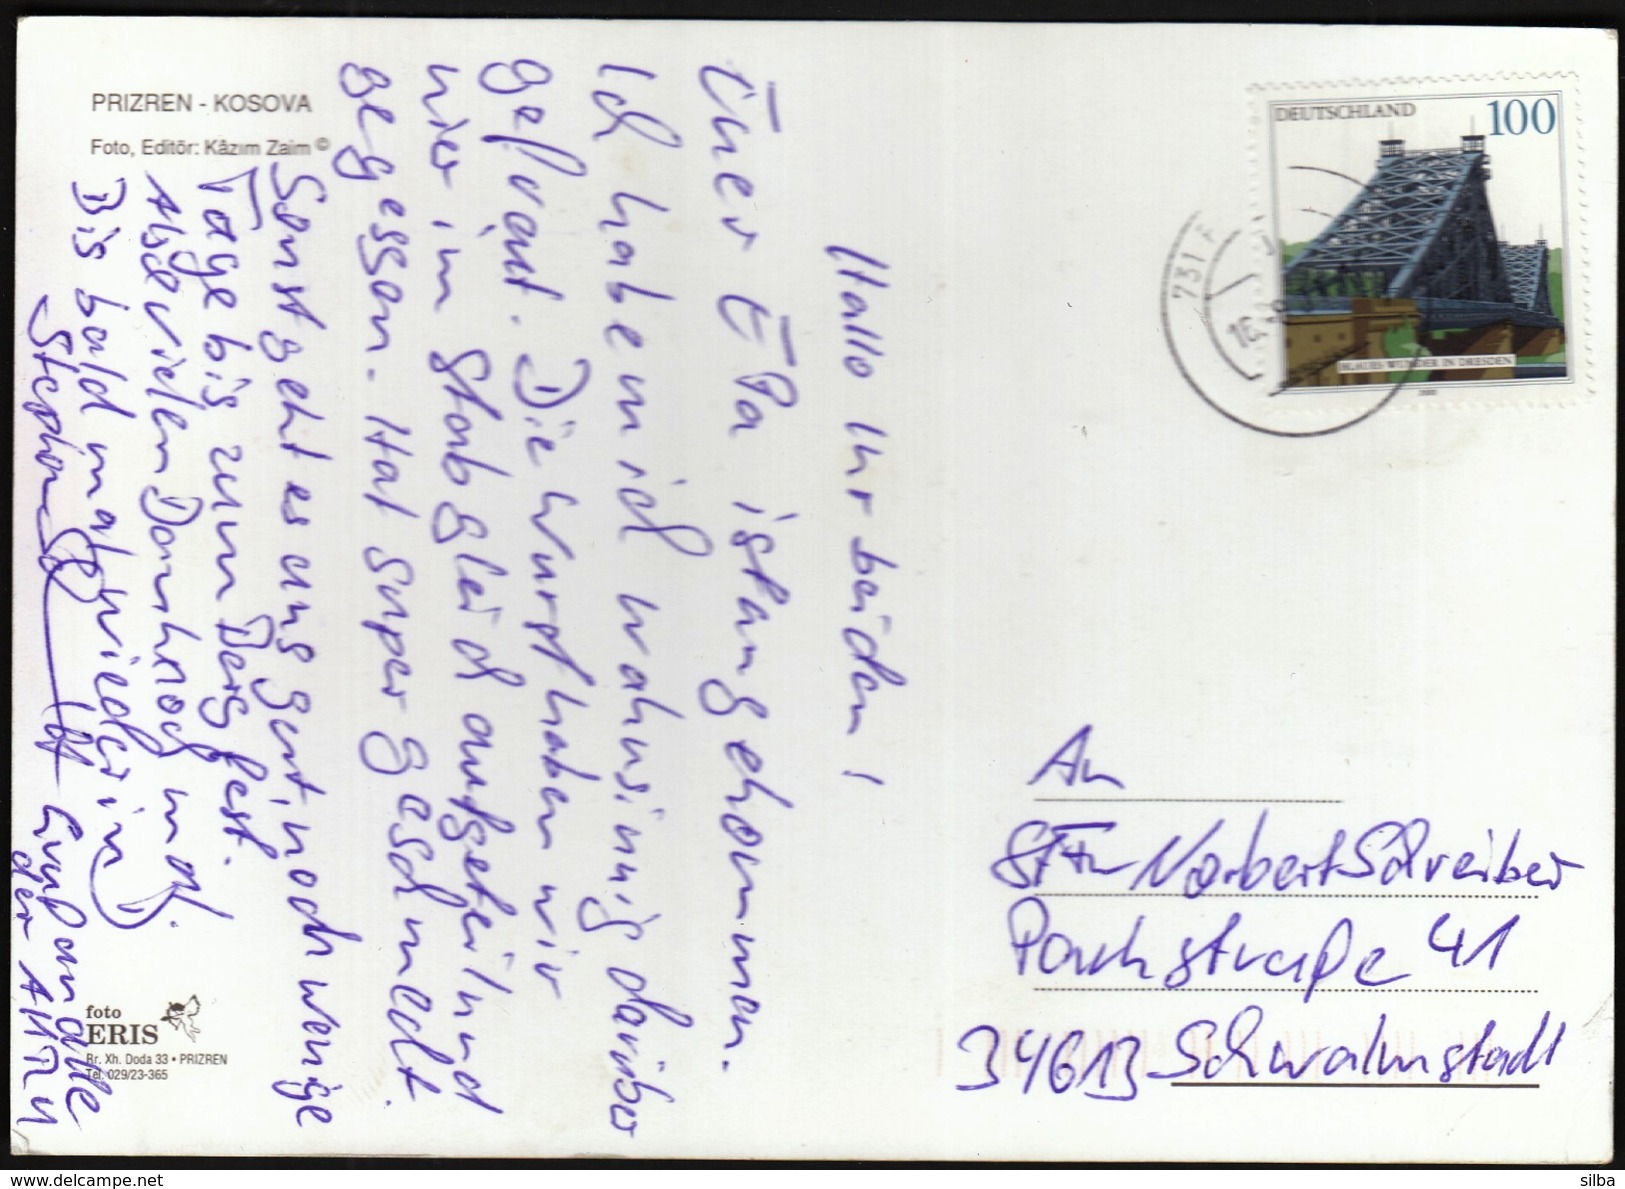 PRIZREN - KOSOVA
Foto, Editör: Kâzım Zaim ©
Hallo Ihr beiden!
Euer EPa ist angekommen.
Ich habe mich wahnsinnig darüber
gefreut. Die Wurst haben wir
hier im Stab gleich aufgeteilt und
gegessen. Hat super geschmeckt.
Sonst geht es uns gut, noch wenige
Tage bis zum Bergfest.
Also vielen Dank noch mal.
Bis bald mal wieder im
Stephan
Gruß an alle
der
foto
ERIS
Rr. Xh. Doda 33 • PRIZREN
Tel. 029/23-365
DEUTSCHLAND 100
BLAUES WUNDER IN DRESDEN
731
An
Norbert Schreiber
Parkstraße 41
34613 Schwalmstadt
delcampe.net
silba